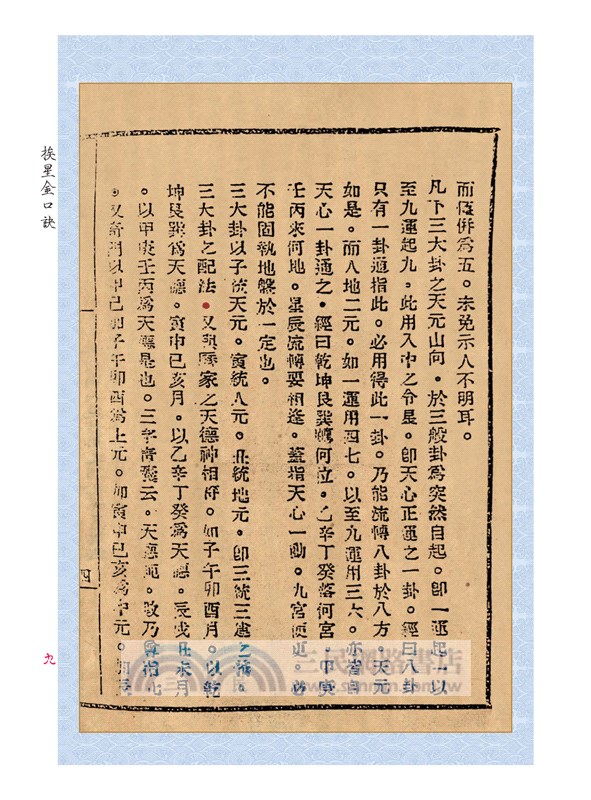 挨星金口訣
而僅併為五。未免示人不明耳。
凡下三大卦之天元山向。於三般卦為突然自起。即一運起一以
至九運起九。此用入中之令星。即天心正運之一卦。經曰八卦
只有一卦通指此。必用得此一卦。乃能流轉八卦於八方。天元
如是。而人地二元。如一運用四七。以至九運用三六。亦皆自
天心一卦通之。經曰乾坤艮巽躔何位。乙辛丁癸落何宮。甲庚
壬丙來何地。星辰流轉要相逢。蓋指天心一動。九宮便更。必
不能固執地盤於一定也。
三大卦以子統天元。寅統人元。丑統地元。即三統三建之義。
三大卦之配法。又與曆家之天德神相符。如子午卯酉月。以乾
坤艮巽為天德。寅申巳亥月。以乙辛丁癸為天德。辰戌丑未月
。以甲庚壬丙為天德是也。三字青囊云。天德範。故乃專指心
。又奇門以甲己加子午卯酉為上元。加寅申巳亥為中元。加辰
四
三民網路書店
www.sanmin.com.tw
九